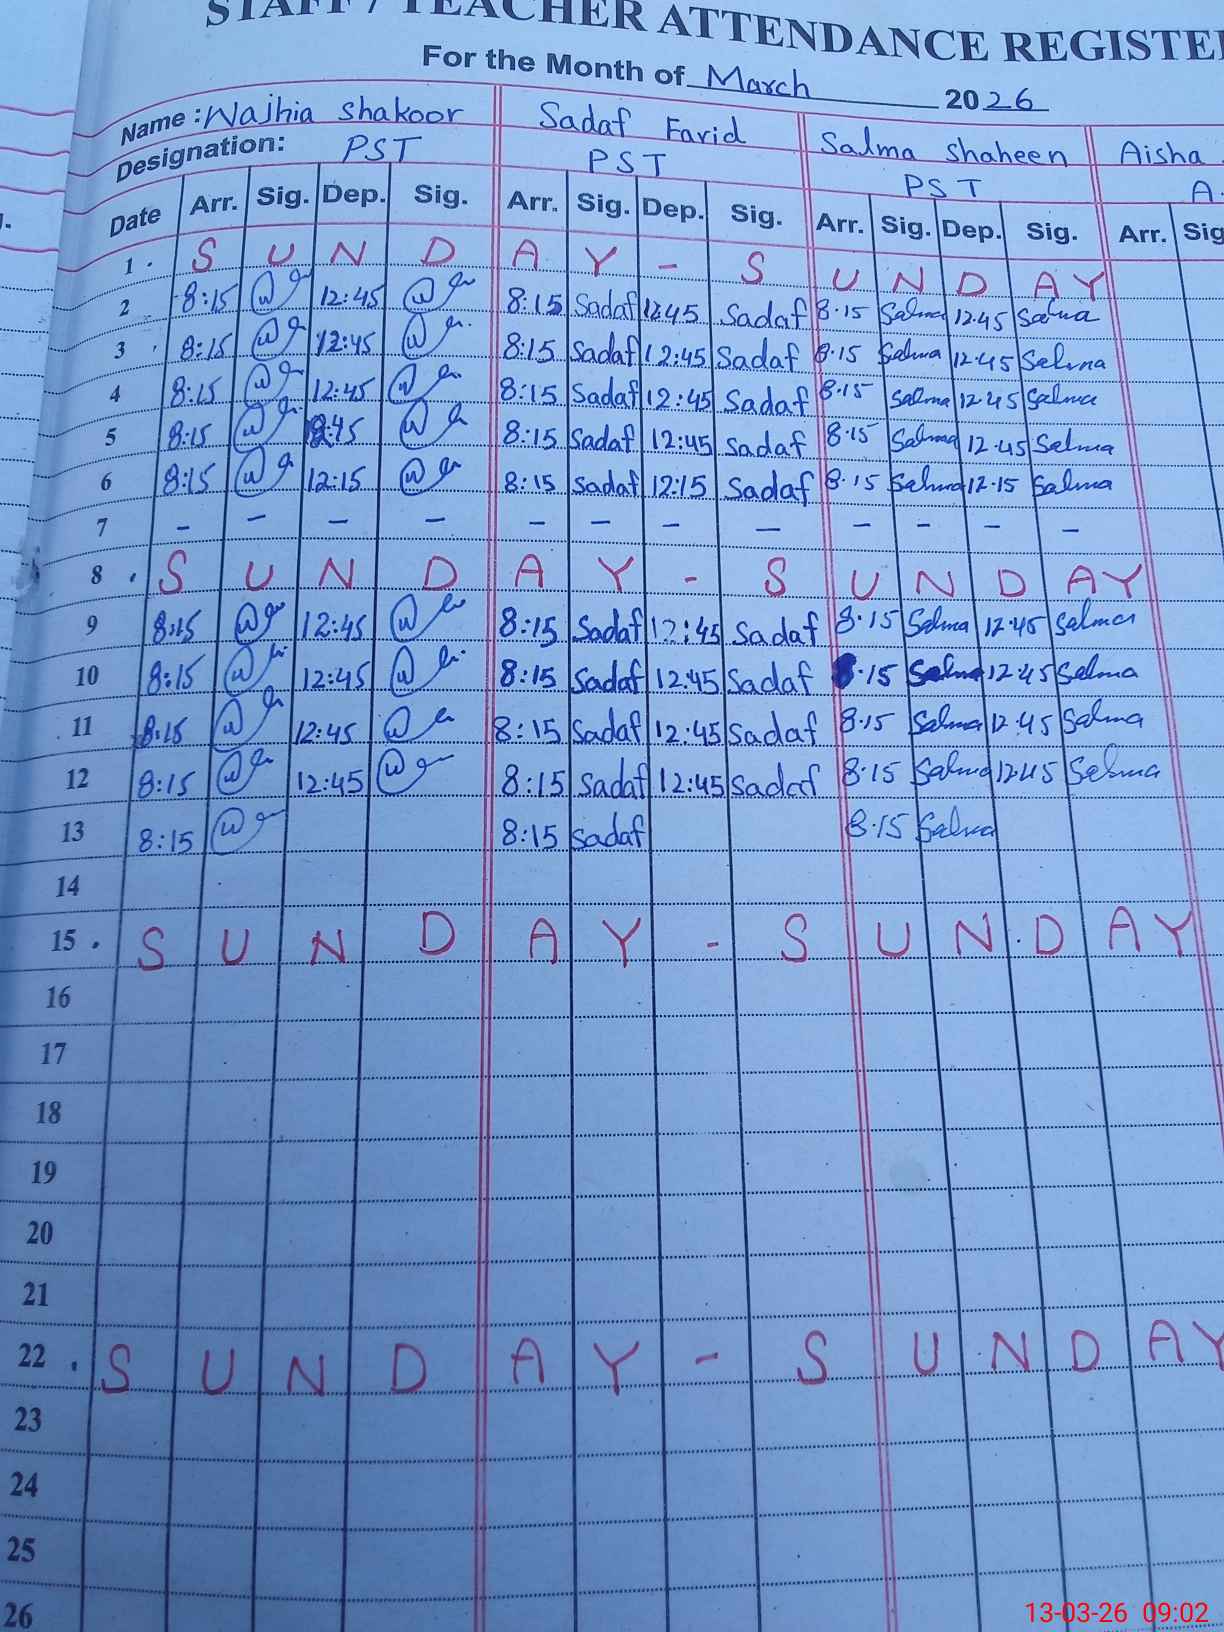 STAFF / TEACHER ATTENDANCE REGISTER
For the Month of March 2026
Name : Wajhia Shakoor Sadaf Farid Salma Shaheen Aisha
Designation: PST PST PST A.
Date Arr. Sig. Dep. Sig. Arr. Sig. Dep. Sig. Arr. Sig. Dep. Sig. Arr. Sig
1 . S U N D A Y - S U N D A Y
2 8:15 12:45 8:15 Sadaf 12:45 Sadaf 8.15 Salma 12.45 Salma
3 8:15 12:45 8:15 Sadaf 12:45 Sadaf 8.15 Salma 12.45 Salma
4 8:15 12:45 8:15 Sadaf 12:45 Sadaf 8.15 Salma 12.45 Salma
5 8:15 8:15 Sadaf 12:45 Sadaf 8.15 Salma 12.45 Salma
6 8:15 12:15 8:15 Sadaf 12:15 Sadaf 8.15 Salma 12.15 Salma
7 - - - - - - - - - - - -
8 . S U N D A Y - S U N D A Y
9 8:15 12:45 8:15 Sadaf 12:45 Sadaf 8.15 Salma 12.45 Salma
10 8:15 12:45 8:15 Sadaf 12:45 Sadaf 8.15 Salma 12.45 Salma
11 8:15 12:45 8:15 Sadaf 12:45 Sadaf 8.15 Salma 12.45 Salma
12 8:15 12:45 8:15 Sadaf 12:45 Sadaf 8.15 Salma 12.45 Salma
13 8:15 8:15 Sadaf 8.15 Salma
14
15 . S U N D A Y - S U N D A Y
16
17
18
19
20
21
22 . S U N D A Y - S U N D A Y
23
24
25
26
13-03-26 09:02